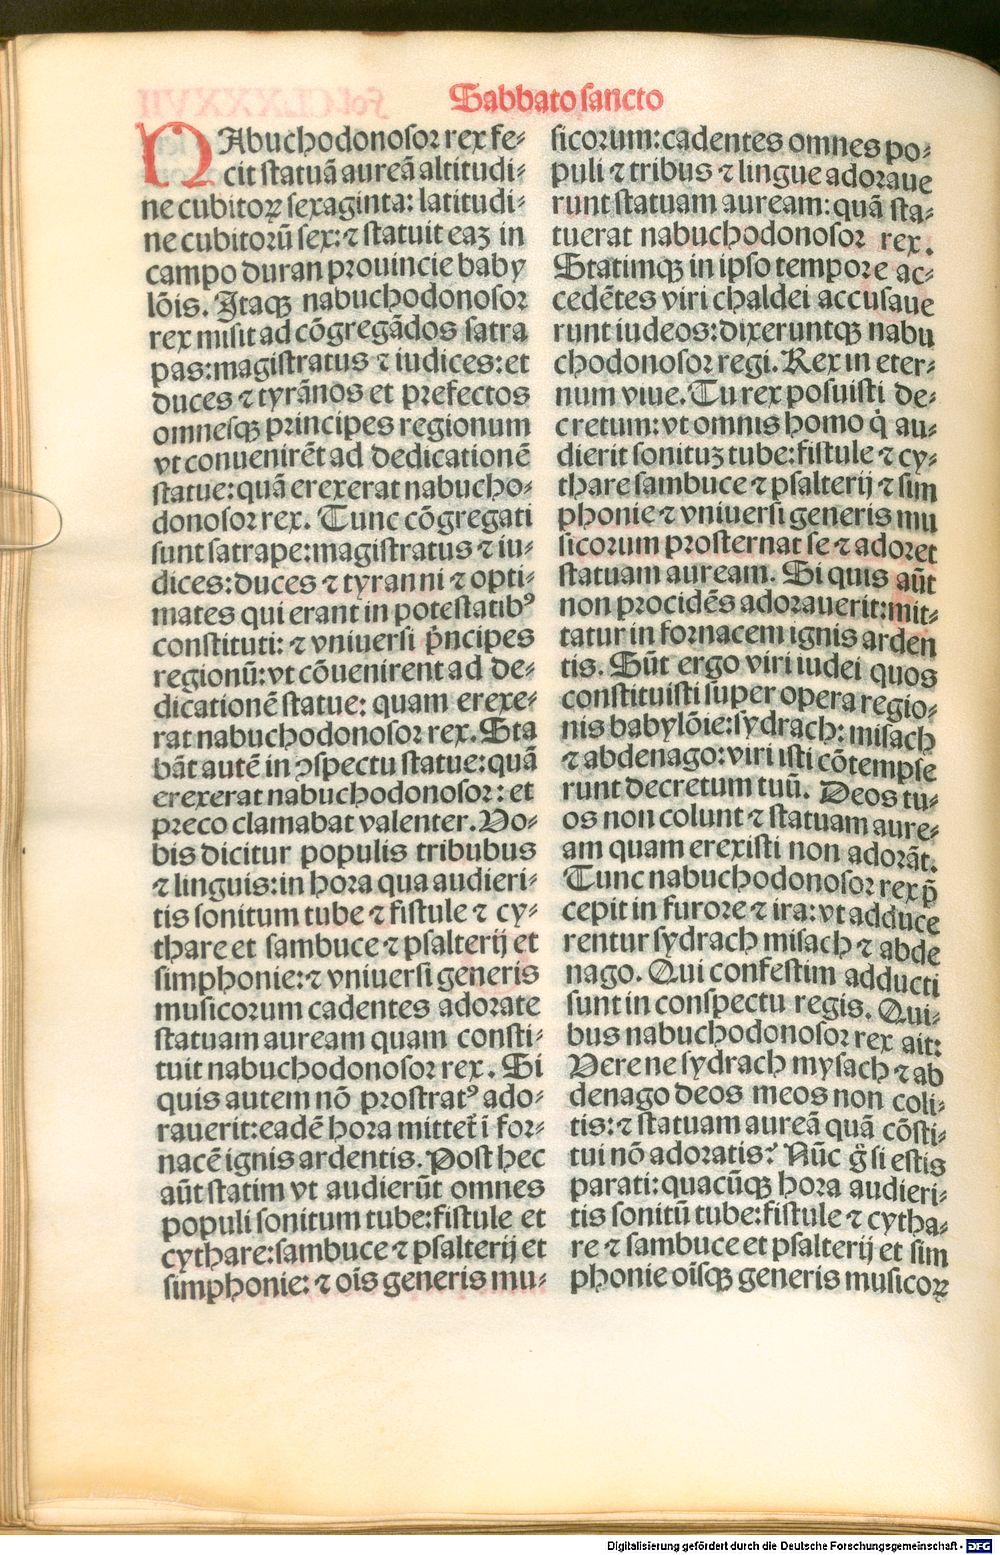 Sabbato sancto
NAbuchodonosor rex fe⸗
cit statuã aureã altitudi⸗
ne cubitoꝝ sexaginta: latitudi⸗
ne cubitorũ sex: ⁊ statuit eaꝫ in
campo duran prouincie baby
lõis. Itaqꝫ nabuchodonosor
rex misit ad cõgregãdos satra
pas: magistratus ⁊ iudices: et
duces ⁊ tyrãnos et prefectos
omnesqꝫ principes regionum
vt conuenirẽt ad dedicationẽ
statue: quã erexerat nabucho⸗
donosor rex. Tunc cõgregati
sunt satrape: magistratus ⁊ iu⸗
dices: duces ⁊ tyranni ⁊ opti⸗
mates qui erant in potestatibꝰ
constituti: ⁊ vniuersi pͥncipes
regionũ: vt cõuenirent ad de⸗
dicationẽ statue: quam erexe⸗
rat nabuchodonosor rex. Sta
bãt autẽ in ꝯspectu statue: quã
erexerat nabuchodonosor: et
preco clamabat valenter. Vo⸗
bis dicitur populis tribubus
⁊ linguis: in hora qua audieri⸗
tis sonitum tube ⁊ fistule ⁊ cy⸗
thare et sambuce ⁊ psalterij et
simphonie: ⁊ vniuersi generis
musicorum cadentes adorate
statuam auream quam consti⸗
tuit nabuchodonosor rex. Si
quis autem nõ prostratꝰ ado⸗
rauerit: eadẽ hora mittet᷑ ĩ for⸗
nacẽ ignis ardentis. Post hec
aũt statim vt audierũt omnes
populi sonitum tube: fistule et
cythare: sambuce ⁊ psalterij et
simphonie: ⁊ oĩs generis mu⸗
sicorum: cadentes omnes po⸗
puli ⁊ tribus ⁊ lingue adoraue
runt statuam auream: quã sta⸗
tuerat nabuchodonosor rex.
Statimqꝫ in ipso tempore ac⸗
cedẽtes viri chaldei accusaue
runt iudeos: dixeruntqꝫ nabu
chodonosor regi. Rex in eter⸗
num viue. Tu rex posuisti de⸗
cretum: vt omnis homo qͥ au⸗
dierit sonituꝫ tube: fistule ⁊ cy⸗
thare sambuce ⁊ psalterij ⁊ sim
phonie ⁊ vniuersi generis mu
sicorum prosternat se ⁊ adoret
statuam auream. Si quis aũt
non procidẽs adorauerit: mit⸗
tatur in fornacem ignis arden
tis. Sũt ergo viri iudei quos
constituisti super opera regio⸗
nis babylõie: sydrach: misach
⁊ abdenago: viri isti cõtempse
runt decretum tuũ. Deos tu⸗
os non colunt ⁊ statuam aure⸗
am quam erexisti non adorãt.
Tunc nabuchodonosor rex p̃
cepit in furore ⁊ ira: vt adduce
rentur sydrach misach ⁊ abde
nago. Qui confestim adducti
sunt in conspectu regis. Qui⸗
bus nabuchodonosor rex ait:
Vere ne sydrach mysach ⁊ ab
denago deos meos non coli⸗
tis: ⁊ statuam aureã quã cõsti⸗
tui nõ adoratis? Nũc gͦ si estis
parati: quacũqꝫ hora audieri⸗
tis sonitũ tube: fistule ⁊ cytha⸗
re ⁊ sambuce et psalterij et sim
phonie oĩsqꝫ generis musicoꝝ
Digitalisierung gefördert durch die Deutsche Forschungsgemeinschaft - DFG